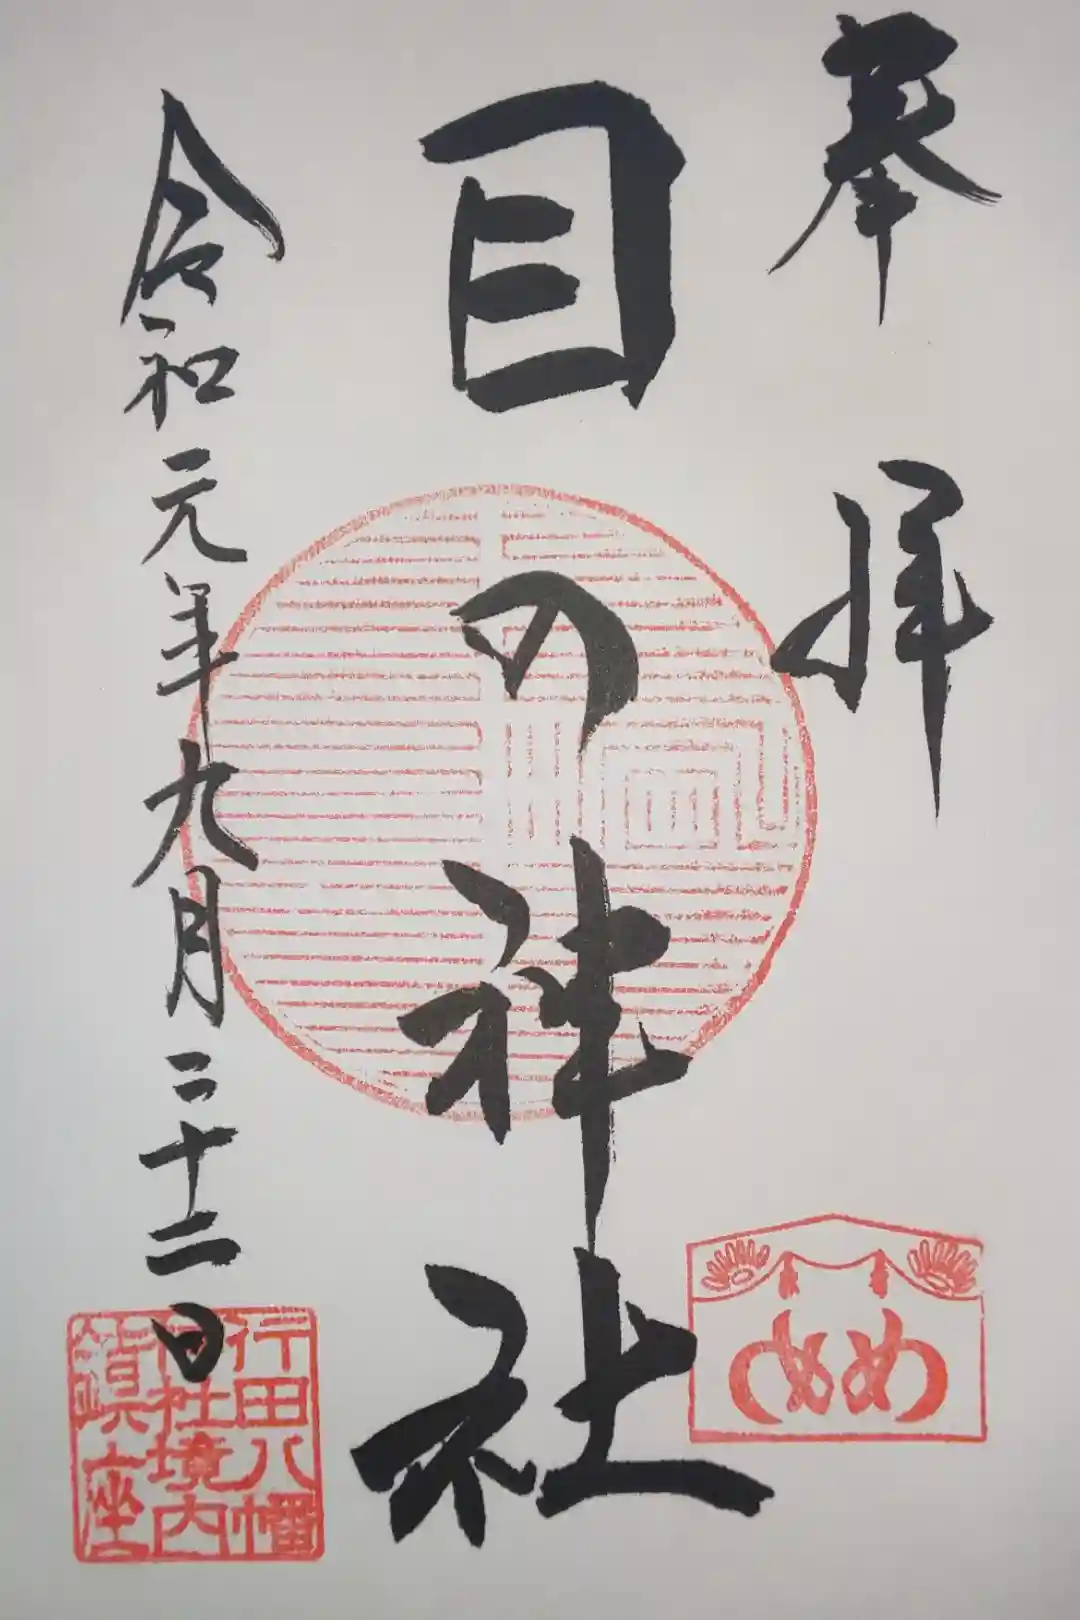 奉拝
目の神社
令和元年九月二十二日
め
行田八幡
神社境内
鎮座